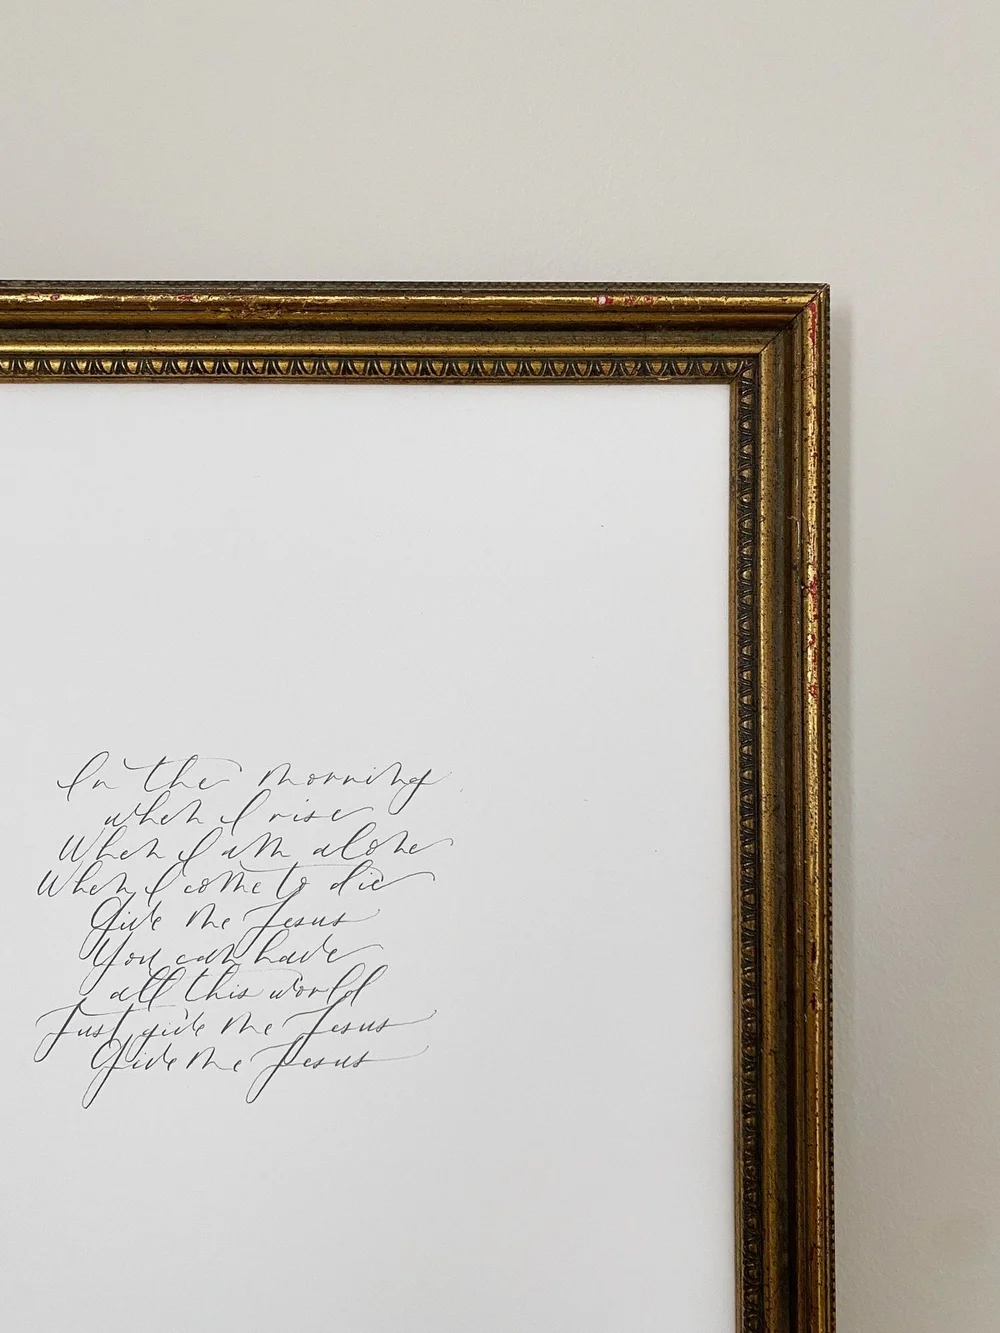 In the morning
when I rise
When I am alone
When I come to die
Give me Jesus
You can have
all this world
Just give me Jesus
Give me Jesus